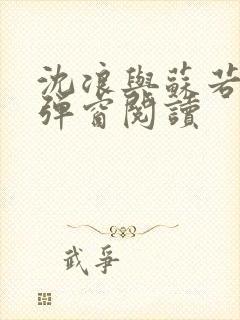 沈浪與蘇若
彈窗閱讀
武爭